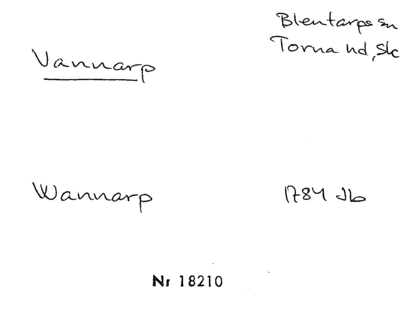 Vannarp
Blentarps sn
Torna hd, Sk
Wannarp
1784 Jb
Nr 18210